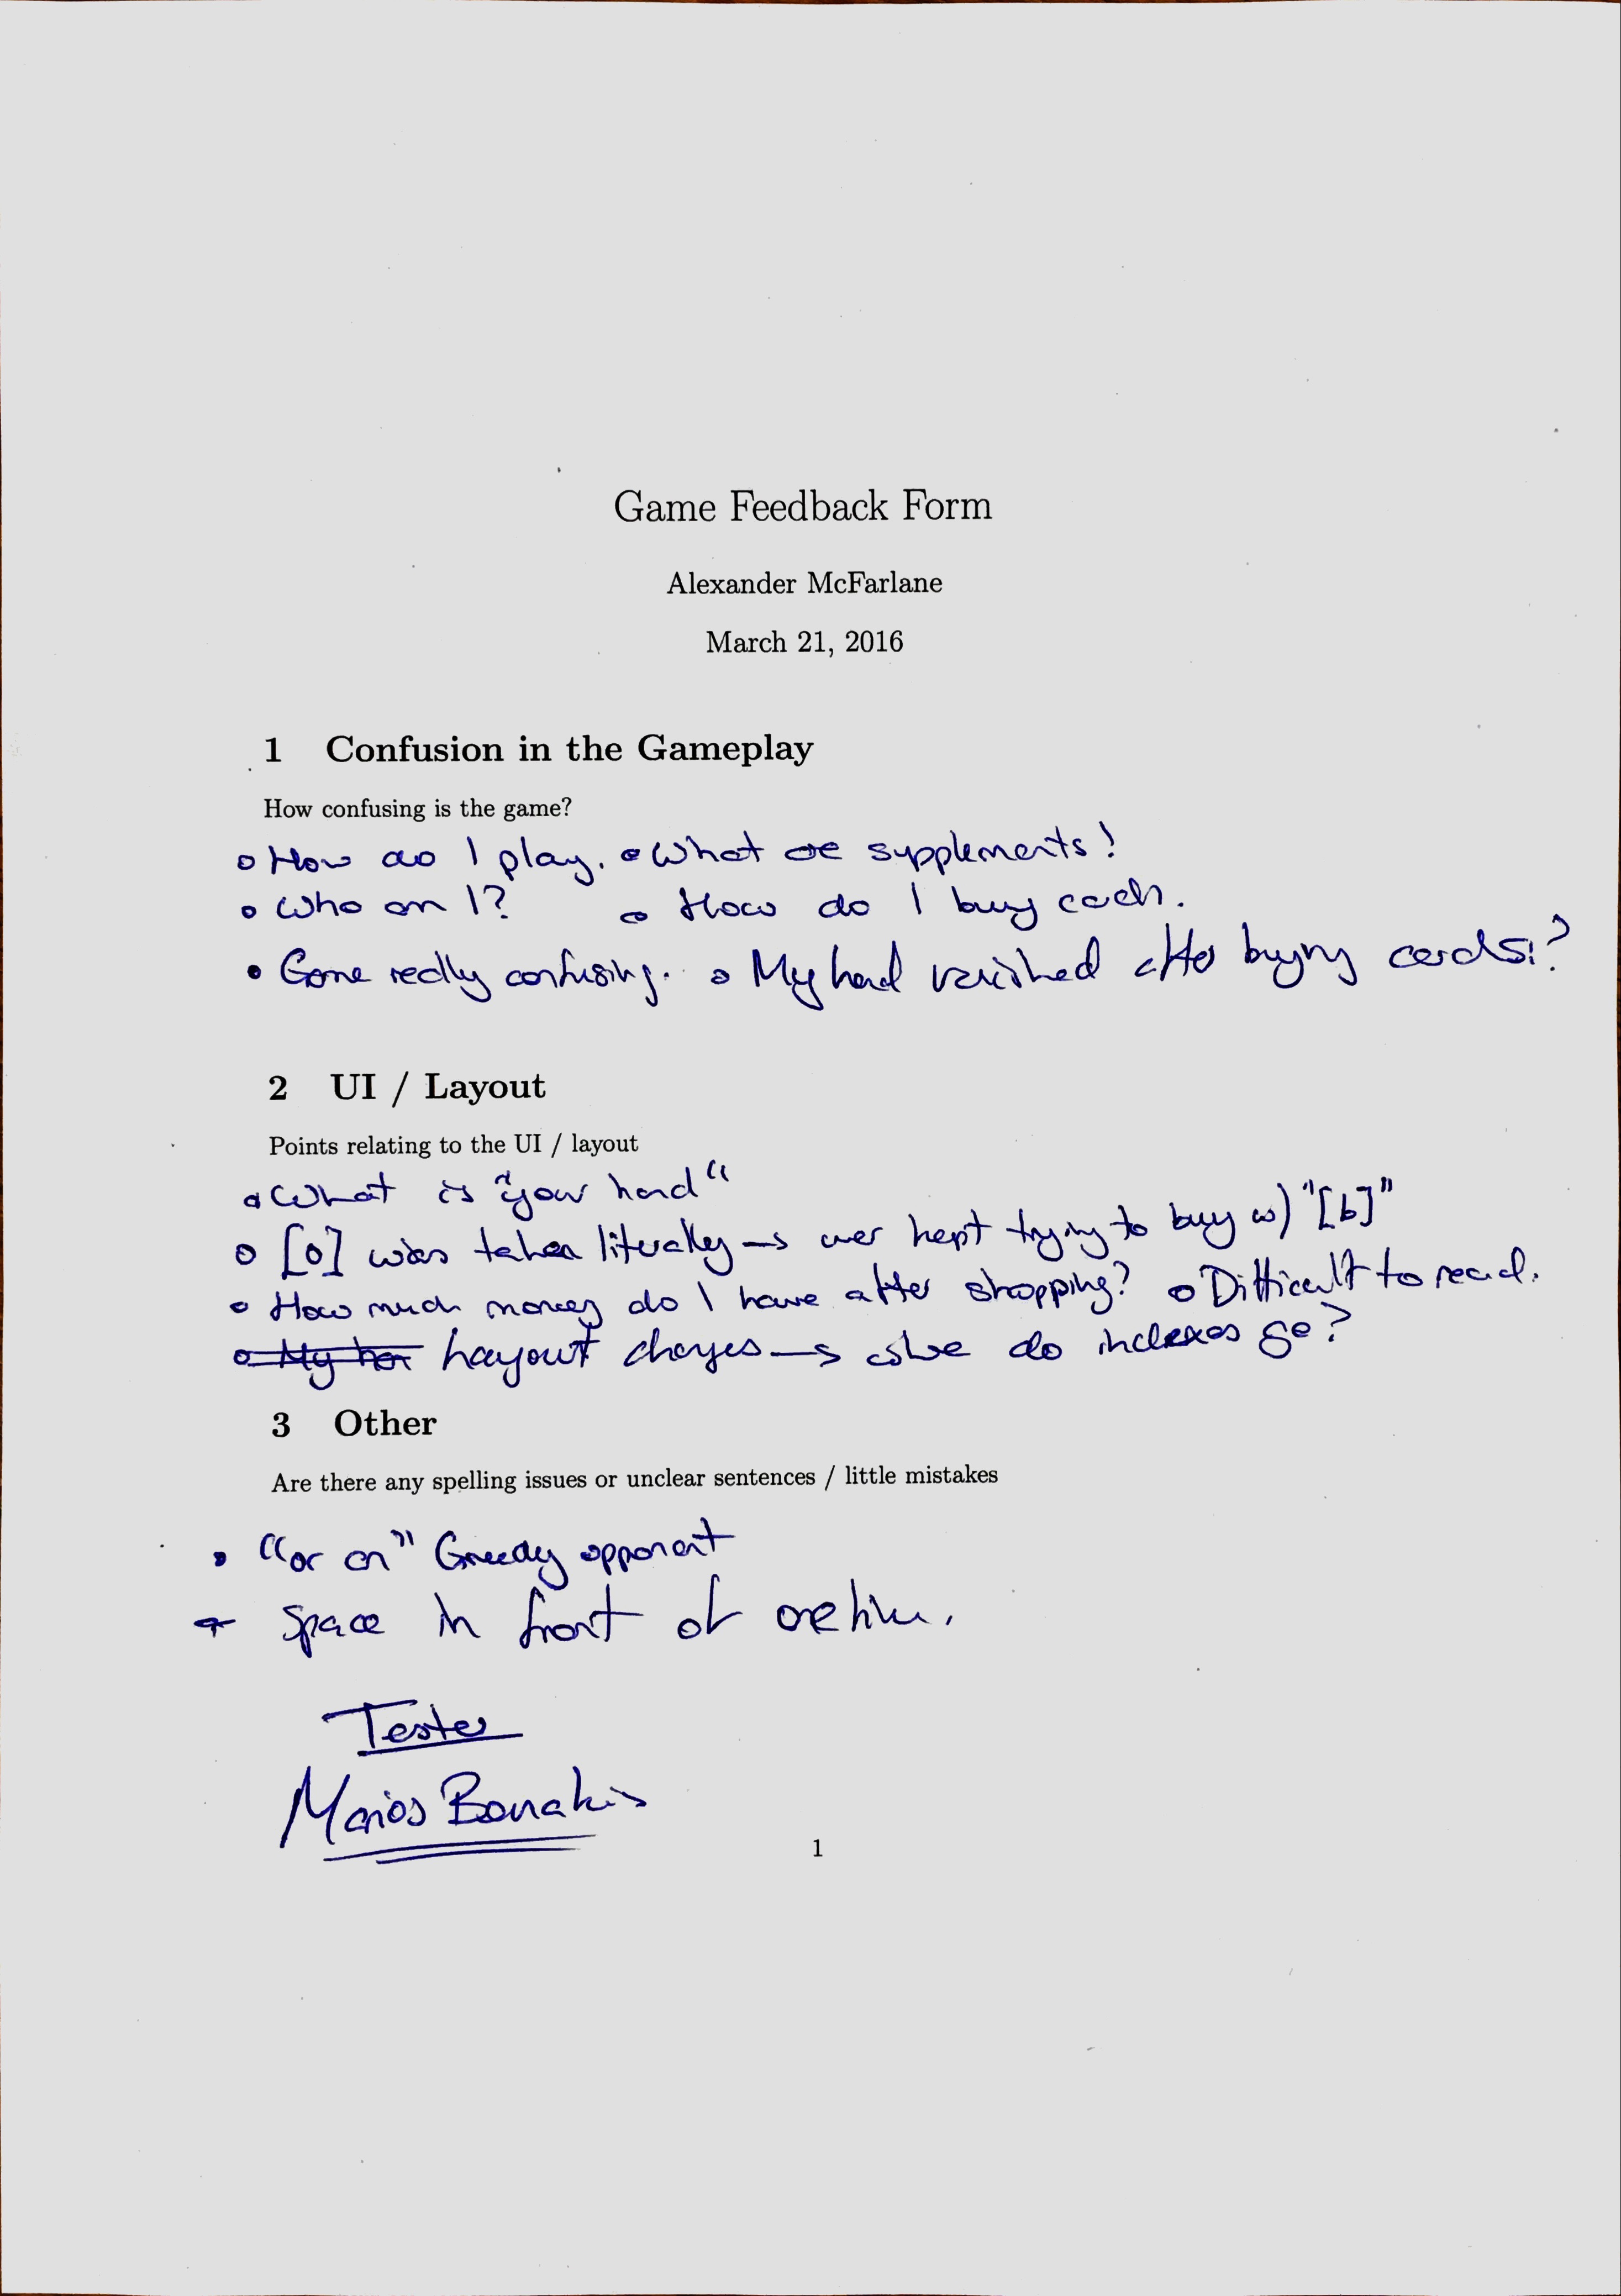 Game Feedback Form
Alexander McFarlane
March 21, 2016
1 Confusion in the Gameplay
How confusing is the game?
o How do I play. o What are supplements!
o Who am I? o How do I buy cards.
• Game really confusing. o My hand vanished after buying cards!?
2 UI / Layout
Points relating to the UI / layout
o What is "your hand"
o [0] was taken literally → user kept trying to buy w/ "[b]"
o How much money do I have after shopping? o Difficult to read.
Layout changes → where do indexes go?
3 Other
Are there any spelling issues or unclear sentences / little mistakes
• "or an" Greedy opponent
space in front of
Tester
Marios
1